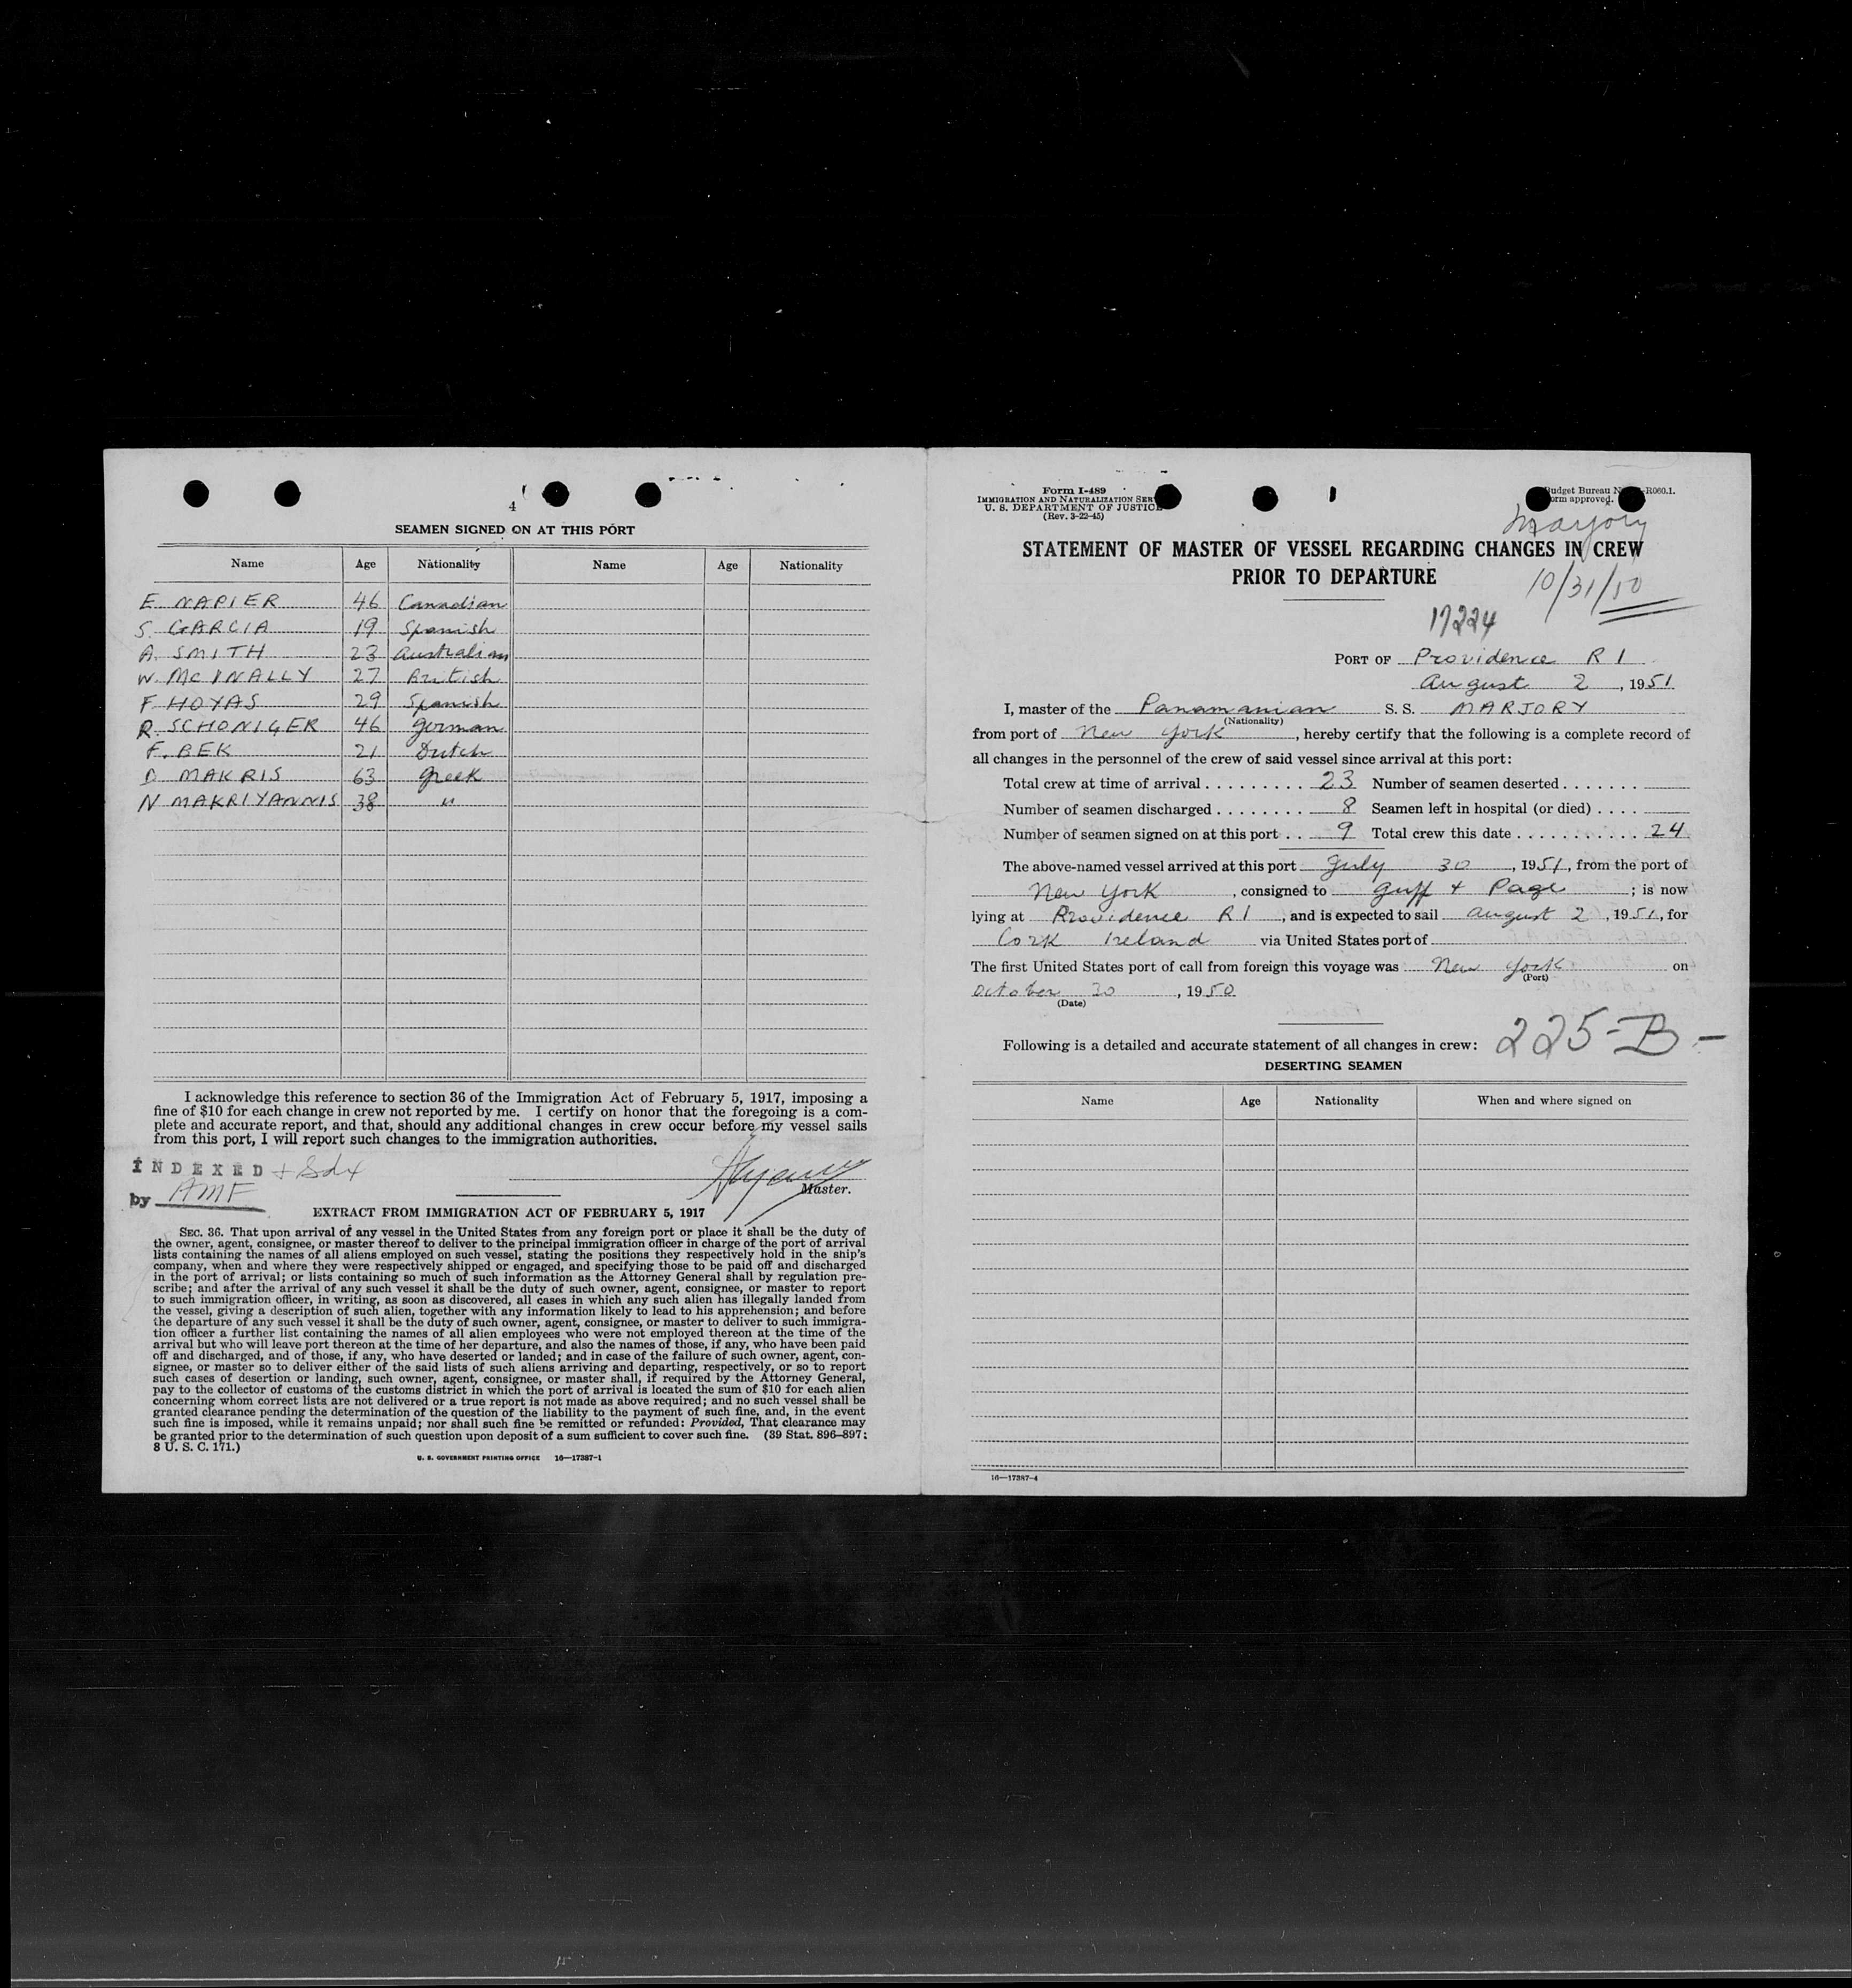 4
SEAMEN SIGNED ON AT THIS PORT
Name Age Nationality Name Age Nationality
E. NAPIER 46 Canadian
S. GARCIA 19 Spanish
A. SMITH 23 Australian
W. McINALLY 27 British
F HOYAS 29 Spanish
R. SCHONIGER 46 German
F. BEK 21 Dutch
D MAKRIS 63 Greek
N MAKRIYANNIS 38 "
I acknowledge this reference to section 36 of the Immigration Act of February 5, 1917, imposing a
fine of $10 for each change in crew not reported by me. I certify on honor that the foregoing is a com-
plete and accurate report, and that, should any additional changes in crew occur before my vessel sails
from this port, I will report such changes to the immigration authorities.
INDEXED
by AMF
Master.
EXTRACT FROM IMMIGRATION ACT OF FEBRUARY 5, 1917
SEC. 36. That upon arrival of any vessel in the United States from any foreign port or place it shall be the duty of
the owner, agent, consignee, or master thereof to deliver to the principal immigration officer in charge of the port of arrival
lists containing the names of all aliens employed on such vessel, stating the positions they respectively hold in the ship's
company, when and where they were respectively shipped or engaged, and specifying those to be paid off and discharged
in the port of arrival; or lists containing so much of such information as the Attorney General shall by regulation pre-
scribe; and after the arrival of any such vessel it shall be the duty of such owner, agent, consignee, or master to report
to such immigration officer, in writing, as soon as discovered, all cases in which any such alien has illegally landed from
the vessel, giving a description of such alien, together with any information likely to lead to his apprehension; and before
the departure of any such vessel it shall be the duty of such owner, agent, consignee, or master to deliver to such immigra-
tion officer a further list containing the names of all alien employees who were not employed thereon at the time of the
arrival but who will leave port thereon at the time of her departure, and also the names of those, if any, who have been paid
off and discharged, and of those, if any, who have deserted or landed; and in case of the failure of such owner, agent, con-
signee, or master so to deliver either of the said lists of such aliens arriving and departing, respectively, or so to report
such cases of desertion or landing, such owner, agent, consignee, or master shall, if required by the Attorney General,
pay to the collector of customs of the customs district in which the port of arrival is located the sum of $10 for each alien
concerning whom correct lists are not delivered or a true report is not made as above required; and no such vessel shall be
granted clearance pending the determination of the question of the liability to the payment of such fine, and, in the event
such fine is imposed, while it remains unpaid; nor shall such fine be remitted or refunded: Provided, That clearance may
be granted prior to the determination of such question upon deposit of a sum sufficient to cover such fine. (39 Stat. 896-897;
8 U. S. C. 171.)
U. S. GOVERNMENT PRINTING OFFICE 16—17387-1
Form I-489
IMMIGRATION AND NATURALIZATION SER
U. S. DEPARTMENT OF JUSTICE
(Rev. 3-22-45)
Budget Bureau N R060.1.
orm approved.
Marjory
STATEMENT OF MASTER OF VESSEL REGARDING CHANGES IN CREW
PRIOR TO DEPARTURE
10/31/50
17224
PORT OF Providence R I
August 2, 1951
I, master of the Panamanian S. S. MARJORY
(Nationality)
from port of New York, hereby certify that the following is a complete record of
all changes in the personnel of the crew of said vessel since arrival at this port:
Total crew at time of arrival 23 Number of seamen deserted
Number of seamen discharged 8 Seamen left in hospital (or died)
Number of seamen signed on at this port 9 Total crew this date 24
The above-named vessel arrived at this port July 30, 1951, from the port of
New York, consigned to Guff + Page; is now
lying at Providence R I, and is expected to sail August 2, 1951, for
Cork Ireland via United States port of
The first United States port of call from foreign this voyage was New York on
(Port)
October 30, 1950
(Date)
Following is a detailed and accurate statement of all changes in crew: 225-B-
DESERTING SEAMEN
Name Age Nationality When and where signed on
16—17387-4